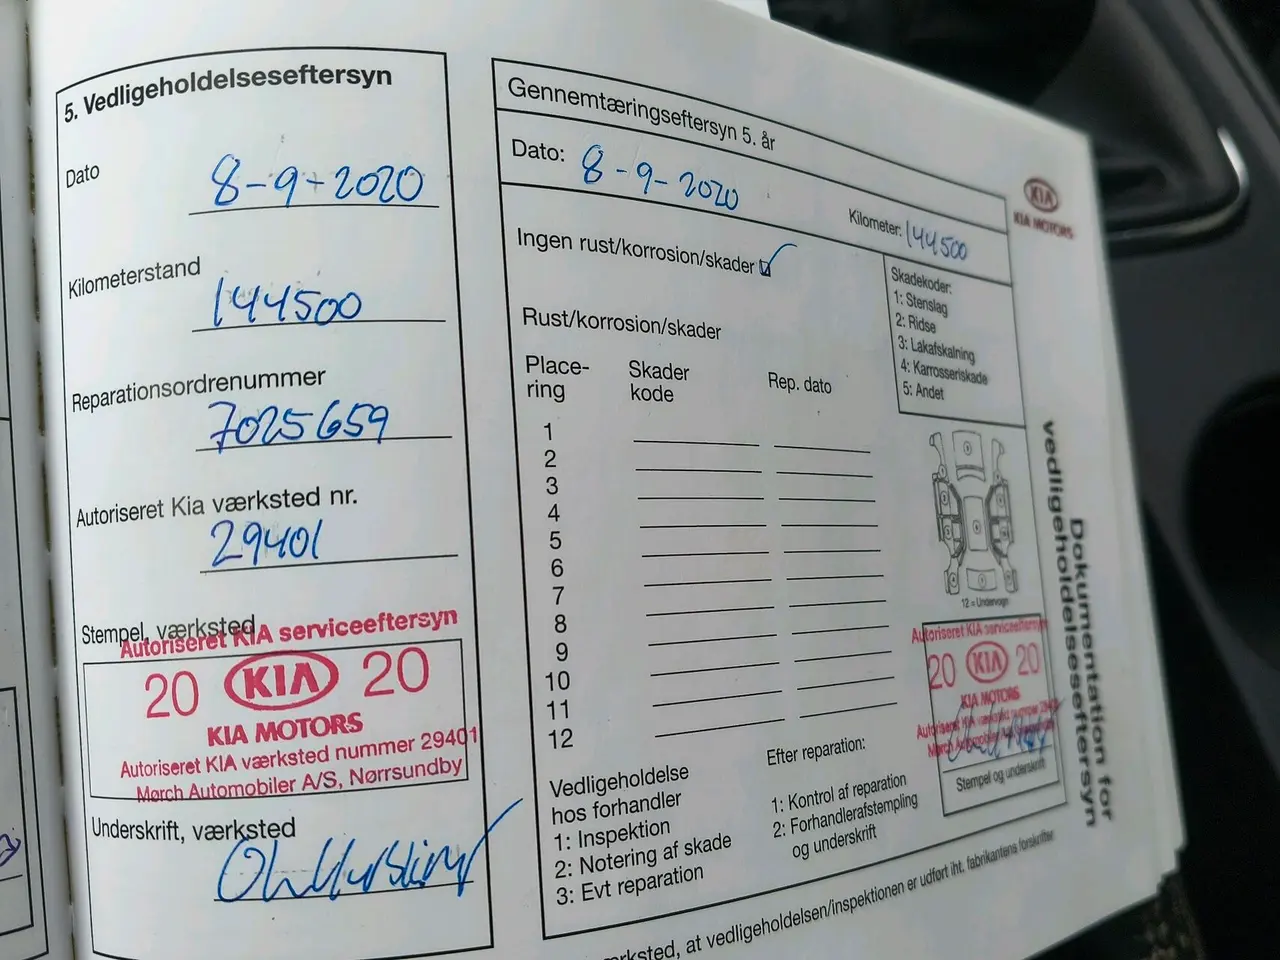 5. Vedligeholdelseseftersyn
Dato
8-9-2020
Kilometerstand
144500
Reparationsordrenummer
7025659
Autoriseret Kia værksted nr.
29401
Stempel, værksted
Autoriseret KIA serviceeftersyn
20 KIA 20
KIA MOTORS
Autoriseret KIA værksted nummer 29401
Mørch Automobiler A/S, Nørrsundby
Underskrift, værksted
Gennemtæringseftersyn 5. år
Dato: 8-9-2020
Kilometer: 144500
Ingen rust/korrosion/skader
Rust/korrosion/skader
Place-
ring
Skader
kode
Rep. dato
1
2
3
4
5
6
7
8
9
10
11
12
Skadekoder:
1: Stenslag
2: Ridse
3: Lakafskalning
4: Karrosseriskade
5: Andet
12 = Undervogn
Vedligeholdelse
hos forhandler
1: Inspektion
2: Notering af skade
3: Evt reparation
Efter reparation:
1: Kontrol af reparation
2: Forhandlerafstempling
og underskrift
Autoriseret KIA serviceeftersyn
20 KIA 20
KIA MOTORS
Autoriseret KIA værksted nummer
Mørch
Stempel og underskrift
KIA
KIA MOTORS
Dokumentation for
vedligeholdelseseftersyn
at vedligeholdelsen/inspektionen er udført iht. fabrikantens forskrifter